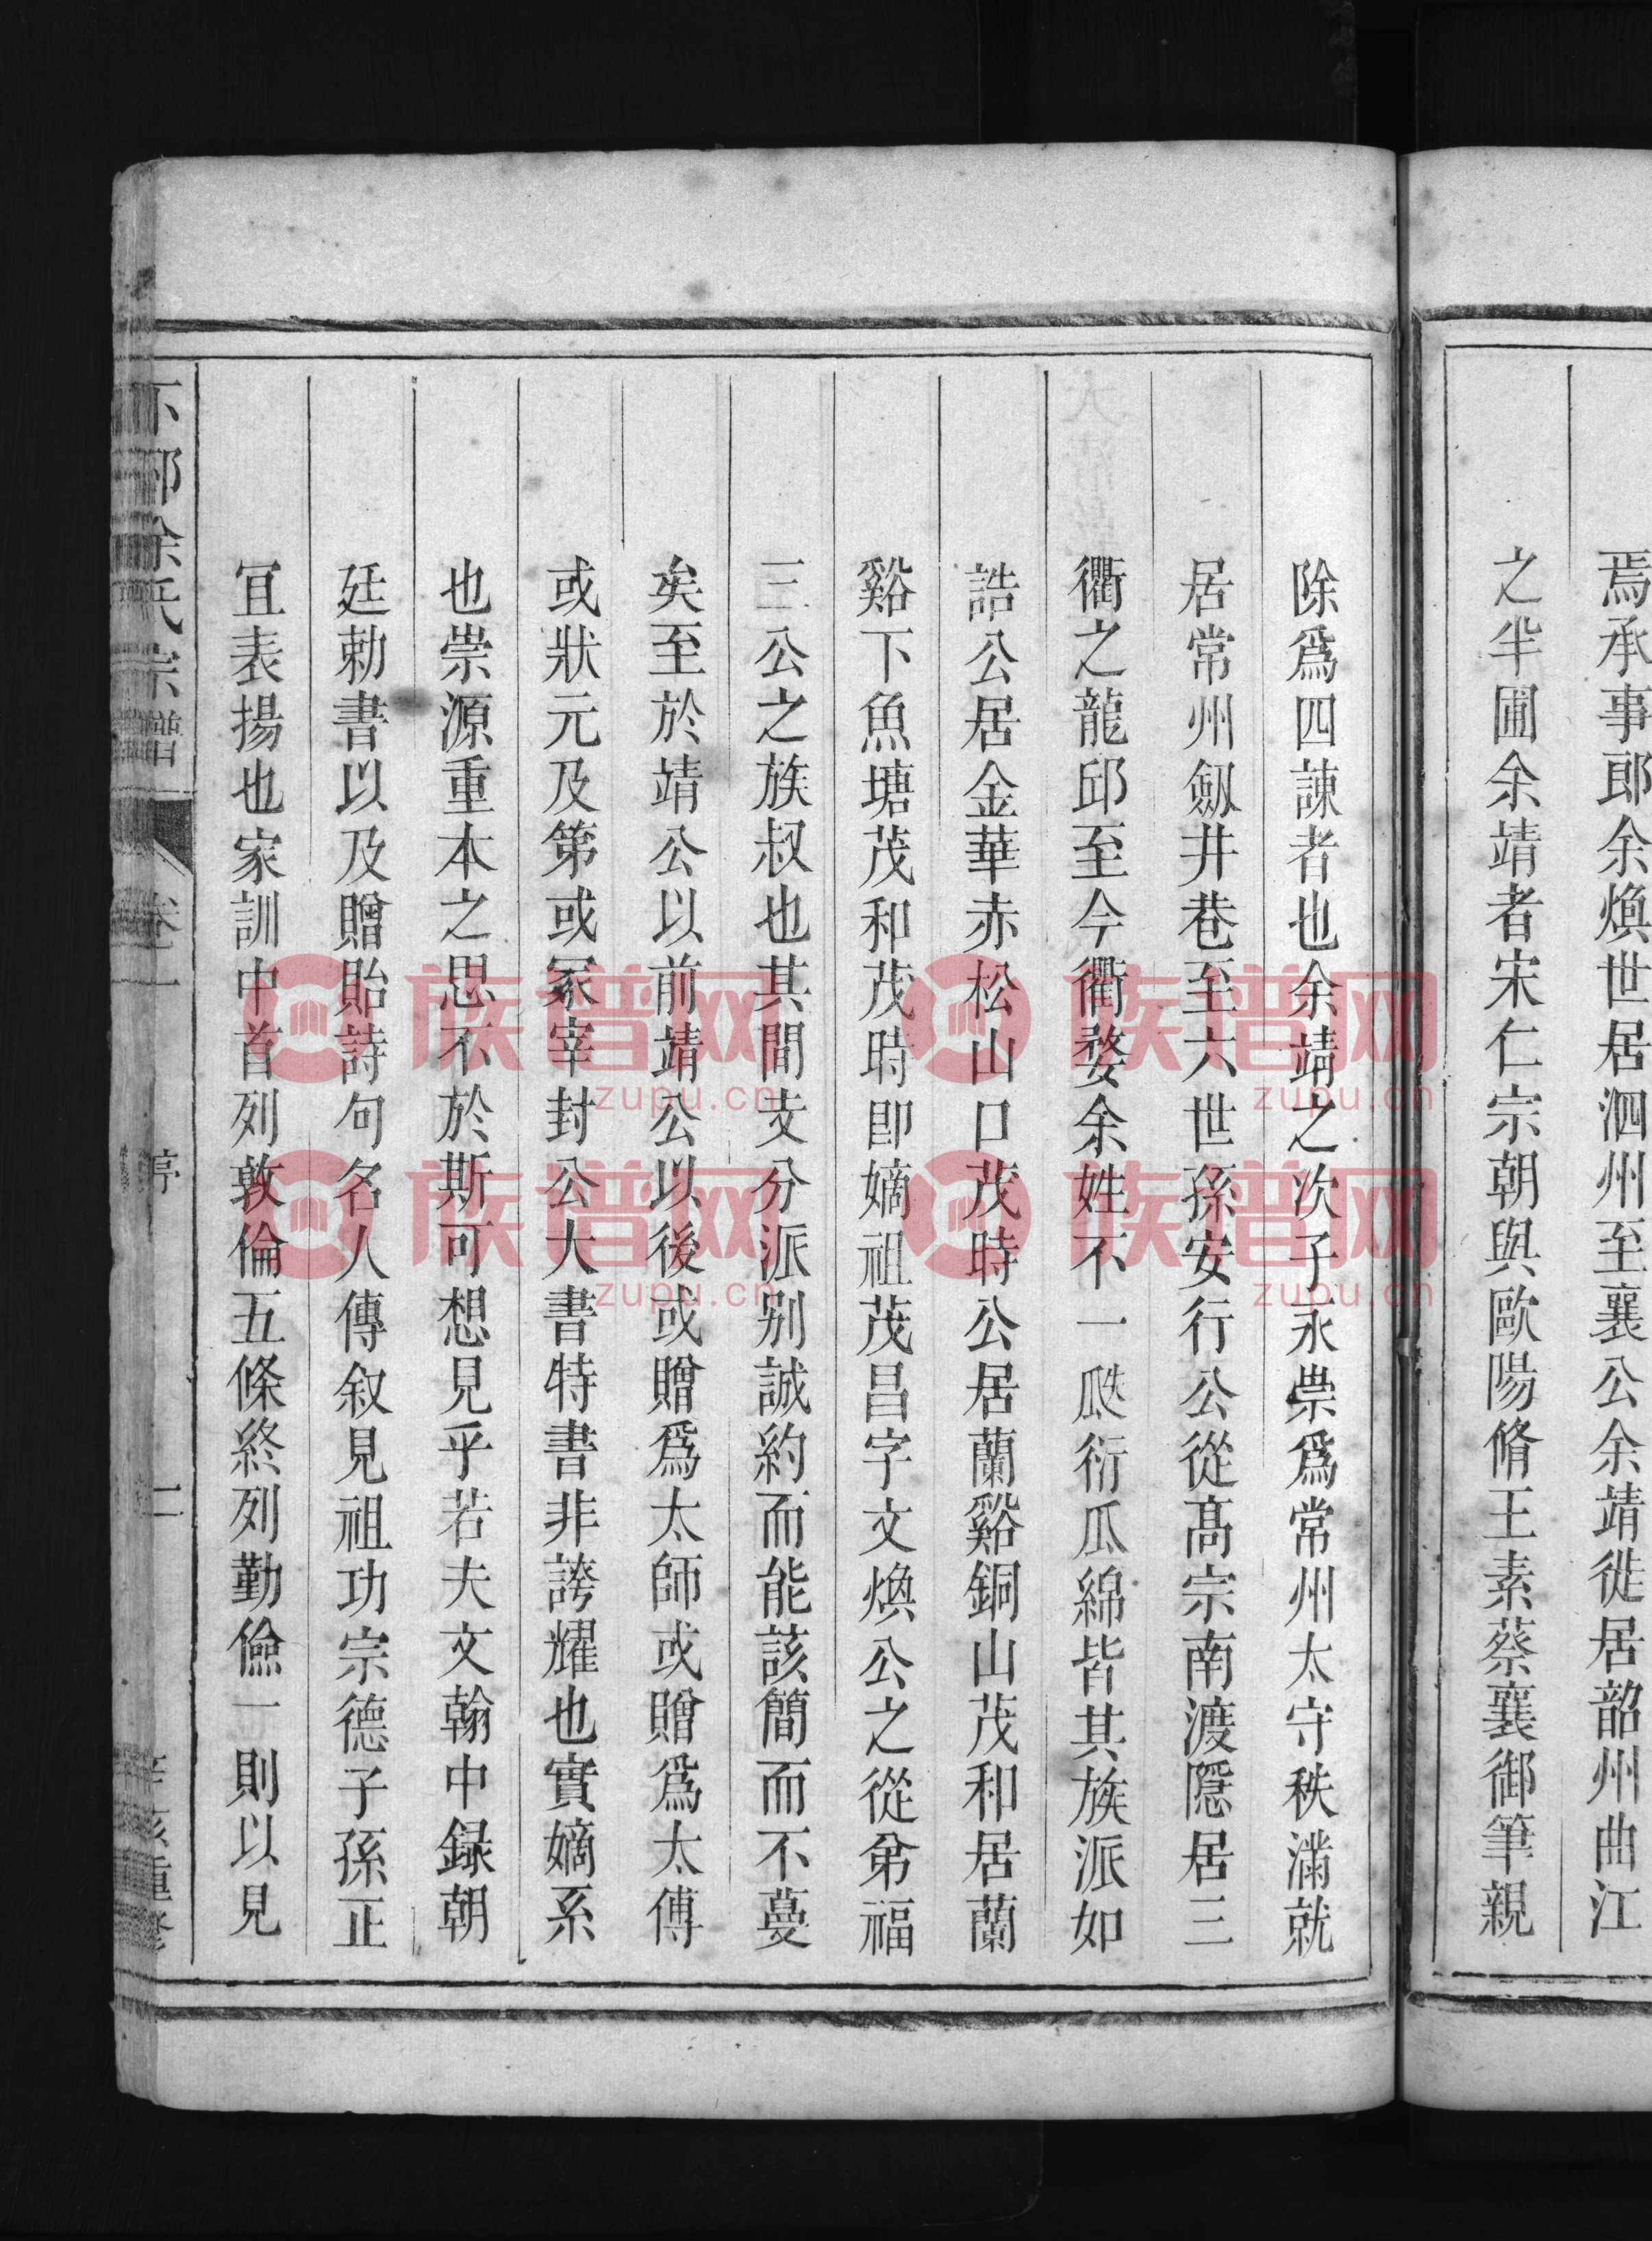 焉承事郎余煥世居泗州至襄公余靖徙居韶州曲江
之半圃余靖者宋仁宗朝與歐陽脩王素蔡襄御筆親
除爲四諫者也余靖之次子永崇爲常州太守秩滿就
居常州劔井巷至六世孫安行公從髙宗南渡隱居三
衢之龍邱至今衢婺余姓不一瓞衍瓜綿皆其族派如
誥公居金華赤松山口茂時公居蘭谿銅山茂和居蘭
谿下魚塘茂和茂時即嫡祖茂昌字文煥公之從弟福
三公之族叔也其間支分派别誠約而能該簡而不蔓
矣至於靖公以前靖公以後或贈爲太師或贈爲太傅
或狀元及第或冢宰封公大書特書非誇耀也實嫡系
也崇源重本之思不於斯可想見乎若夫文翰中録朝
廷勅書以及贈貽詩句名人傳叙見祖功宗德子孫正
宜表揚也家訓中首列敦倫五條終列勤儉一則以見
下邳余氏宗譜 卷一 序 二 辛亥重修
族谱网
zupu.cn
族谱网
zupu.cn
族谱网
zupu.cn
族谱网
zupu.cn